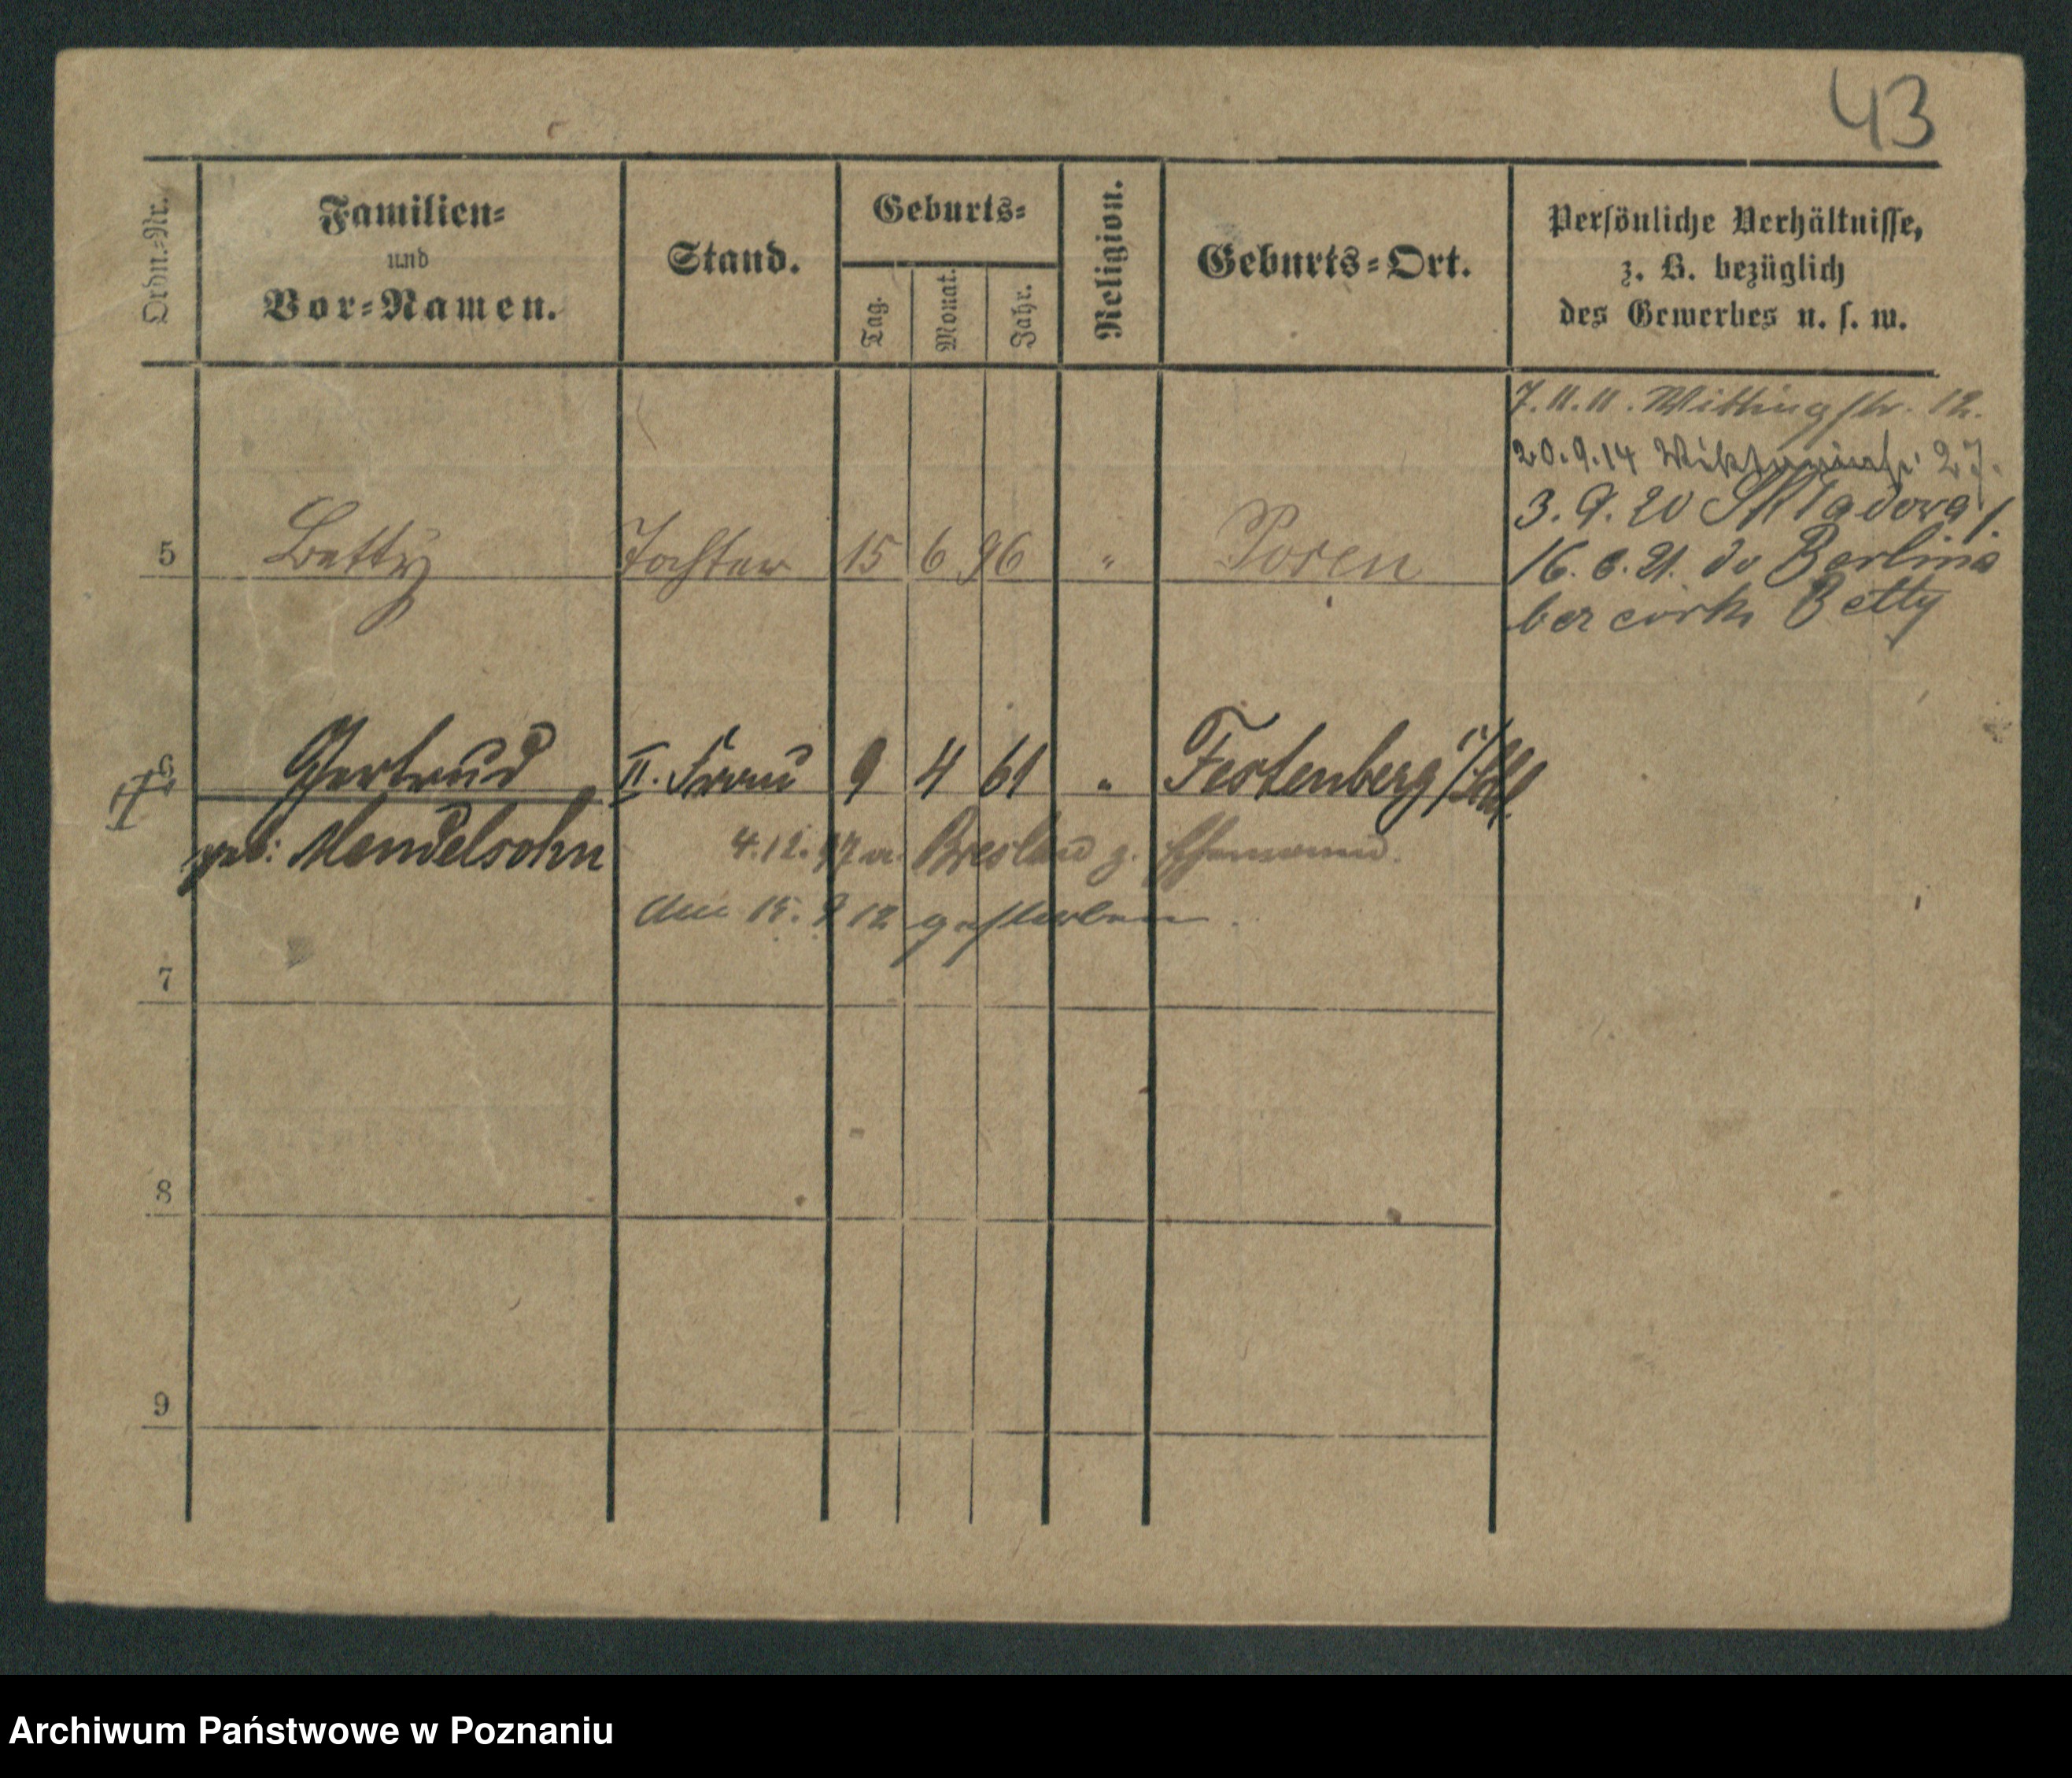 43
Ordn.-Nr.
Familien-
und
Vor-Namen.
Stand.
Geburts-
Tag.
Monat.
Jahr.
Religion.
Geburts-Ort.
Persönliche Verhältnisse,
z. B. bezüglich
des Gewerbes u. s. w.
7.11.11. Wittingstr. 12.
20.9.14 27.
3. 9. 20 Składowa
5 Betty Tochter 15 6 96 " Posen
16. 8. 21. do Berlina
bez córki Betty
6 Gertrud II. Frau 9 4 61 " Festenberg i/Schl.
geb. Mendelsohn
4.12. Breslau z. Ehemann.
Am 15. 9 12 gestorben.
7
8
9
Archiwum Państwowe w Poznaniu